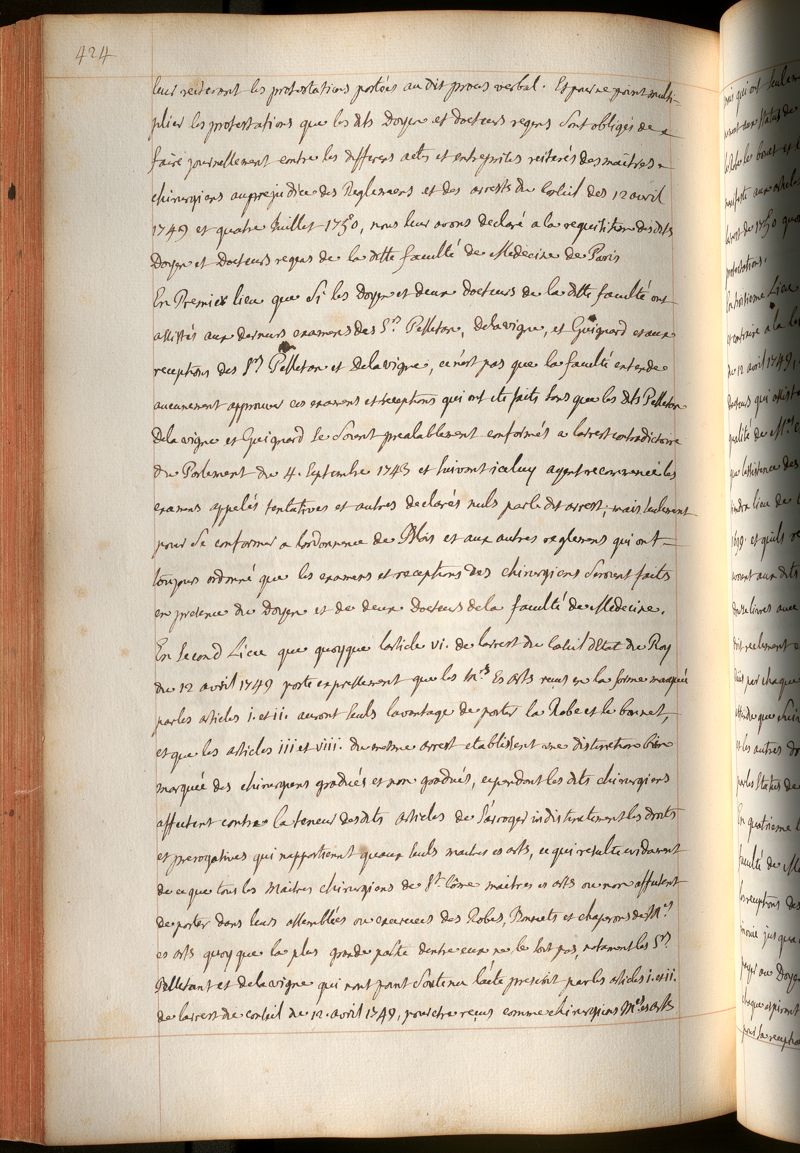 424
leur reiterent les protestations portées au dit proces verbal. Et pour ne point multi-
plier les protestations que les dts Doyen et docteurs regens sont obligés de
faire journellement contre les differens actes et entreprises reiterés des maitres
chirurgiens au prejudice des Reglemens et des arrests du Conseil des 12 avril
1749 et quatre Juillet 1750, nous leur avons declaré a la requisition desdts
Doyen et Docteurs regens de la ditte faculté de Medecine de Paris
En Premier lieu que si les Doyen et deux docteurs de la ditte faculté ont
assistés aux derniers examens des Srs Pelletan, delavigne, et Guignard et aux
receptions des Srs Pelletan et delavigne, ce n'est pas que la faculté entende
aucunement approuver ces examens et receptions qui ont ete faits sans que les dts Pelletan
Delavigne et Guignard se soient prealablement conformés a larrest contradictoire
du Parlement du 4. Septembre 1743 et suivant iceluy ayent recommencé les
examens appelés tentatives et autres declarés nuls par le dit arrest; mais seulement
pour se conformer a lordonnence de Blois et aux autres reglemens qui ont
toujours ordonné que les examens et receptions des chirurgiens seroient faits
en presence du Doyen et de deux Docteurs de la faculté de Medecine.
En Second Lieu que quoyque larticle vi. de larrest du Conseil dEtat du Roy
du 12 avril 1749 porte expressement que les Mes Es arts reçus en la forme marquée
par les articles i. et ii. auront seuls lavantage de porter la Robe et le bonnet,
et que les articles iii et viii. du mesme arrest etablissent une distinction bien
marquée des chirurgiens gradués et non gradués, cependant les dits chirurgiens
affectent contre la teneur desdts articles de s'arroger indistinctement les droits
et prerogatives qui n'appartienent quaux seuls maitres es arts, ce qui resulte evidament
de ce que tous les Maitres chirurgiens de St. Côme maitres es arts ou non affectent
de porter dans leurs assemblées ou exercices des Robes, Bonnets et chaperons de Mes
es arts quoy que la plus grande partie dentre eux ne le sont pas, notament les Srs
Pelletant et delavigne qui nont point soutenu lacte prescrit par les articles i. et ii.
de larrest du conseil du 12. avril 1749, pour etre reçus comme chirurgiens Mes es arts